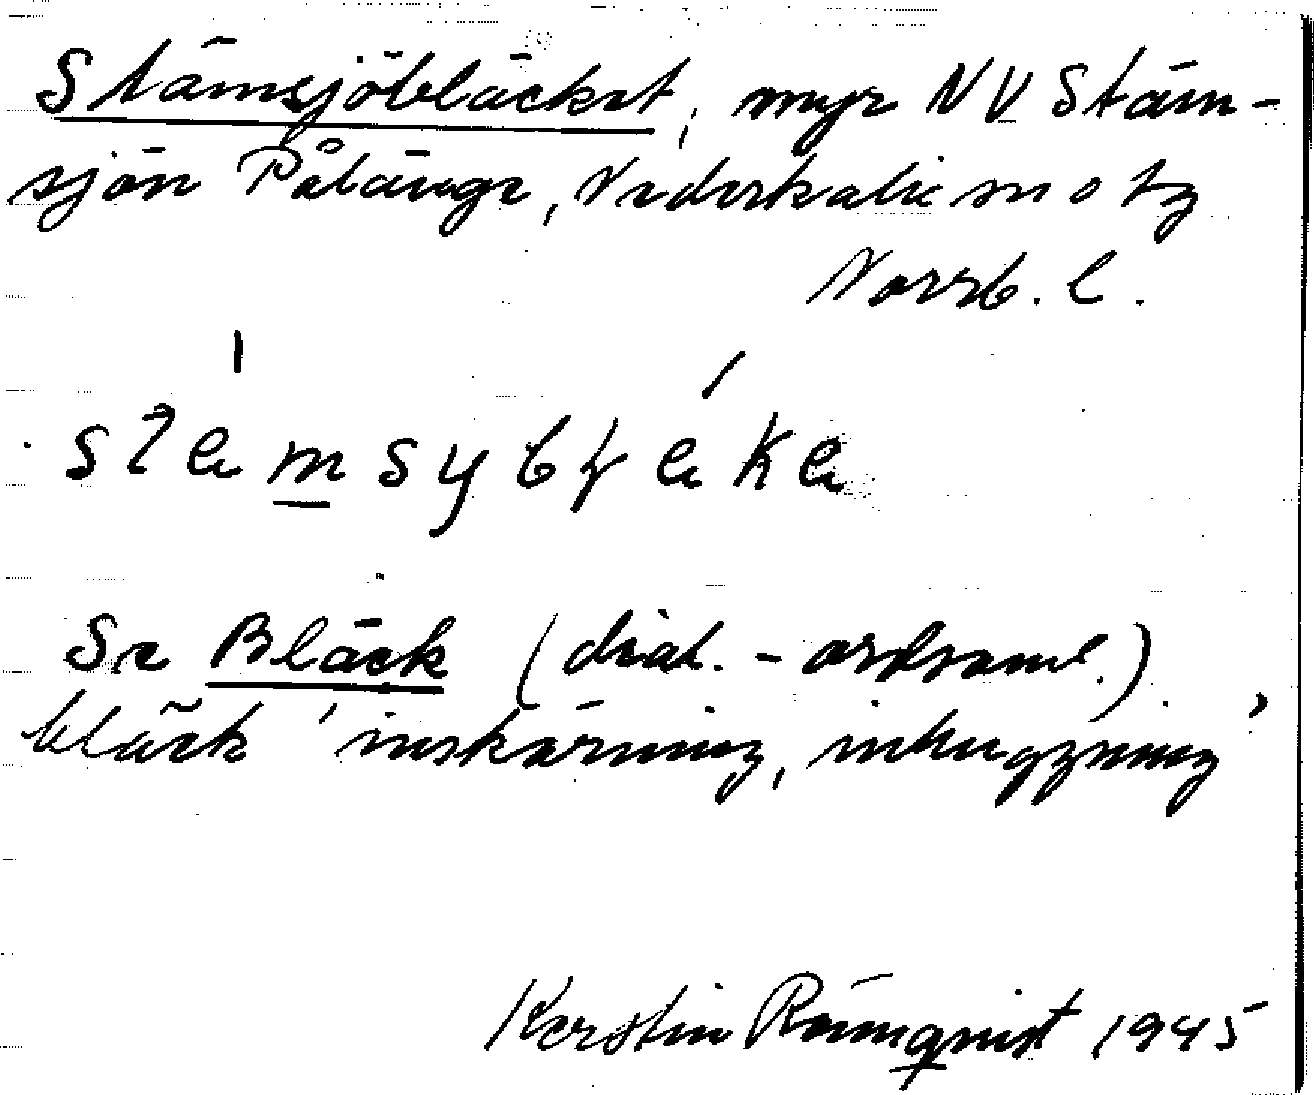 Stämsjöbläcket, myr NV Stäm-
sjön Pålänge, Nederkalix sn o tg
Norrb. l.
Se Bläck (dial.-ordsaml.)
bläck 'inskärning, inhuggning'
Kerstin Rönnqvist 1945